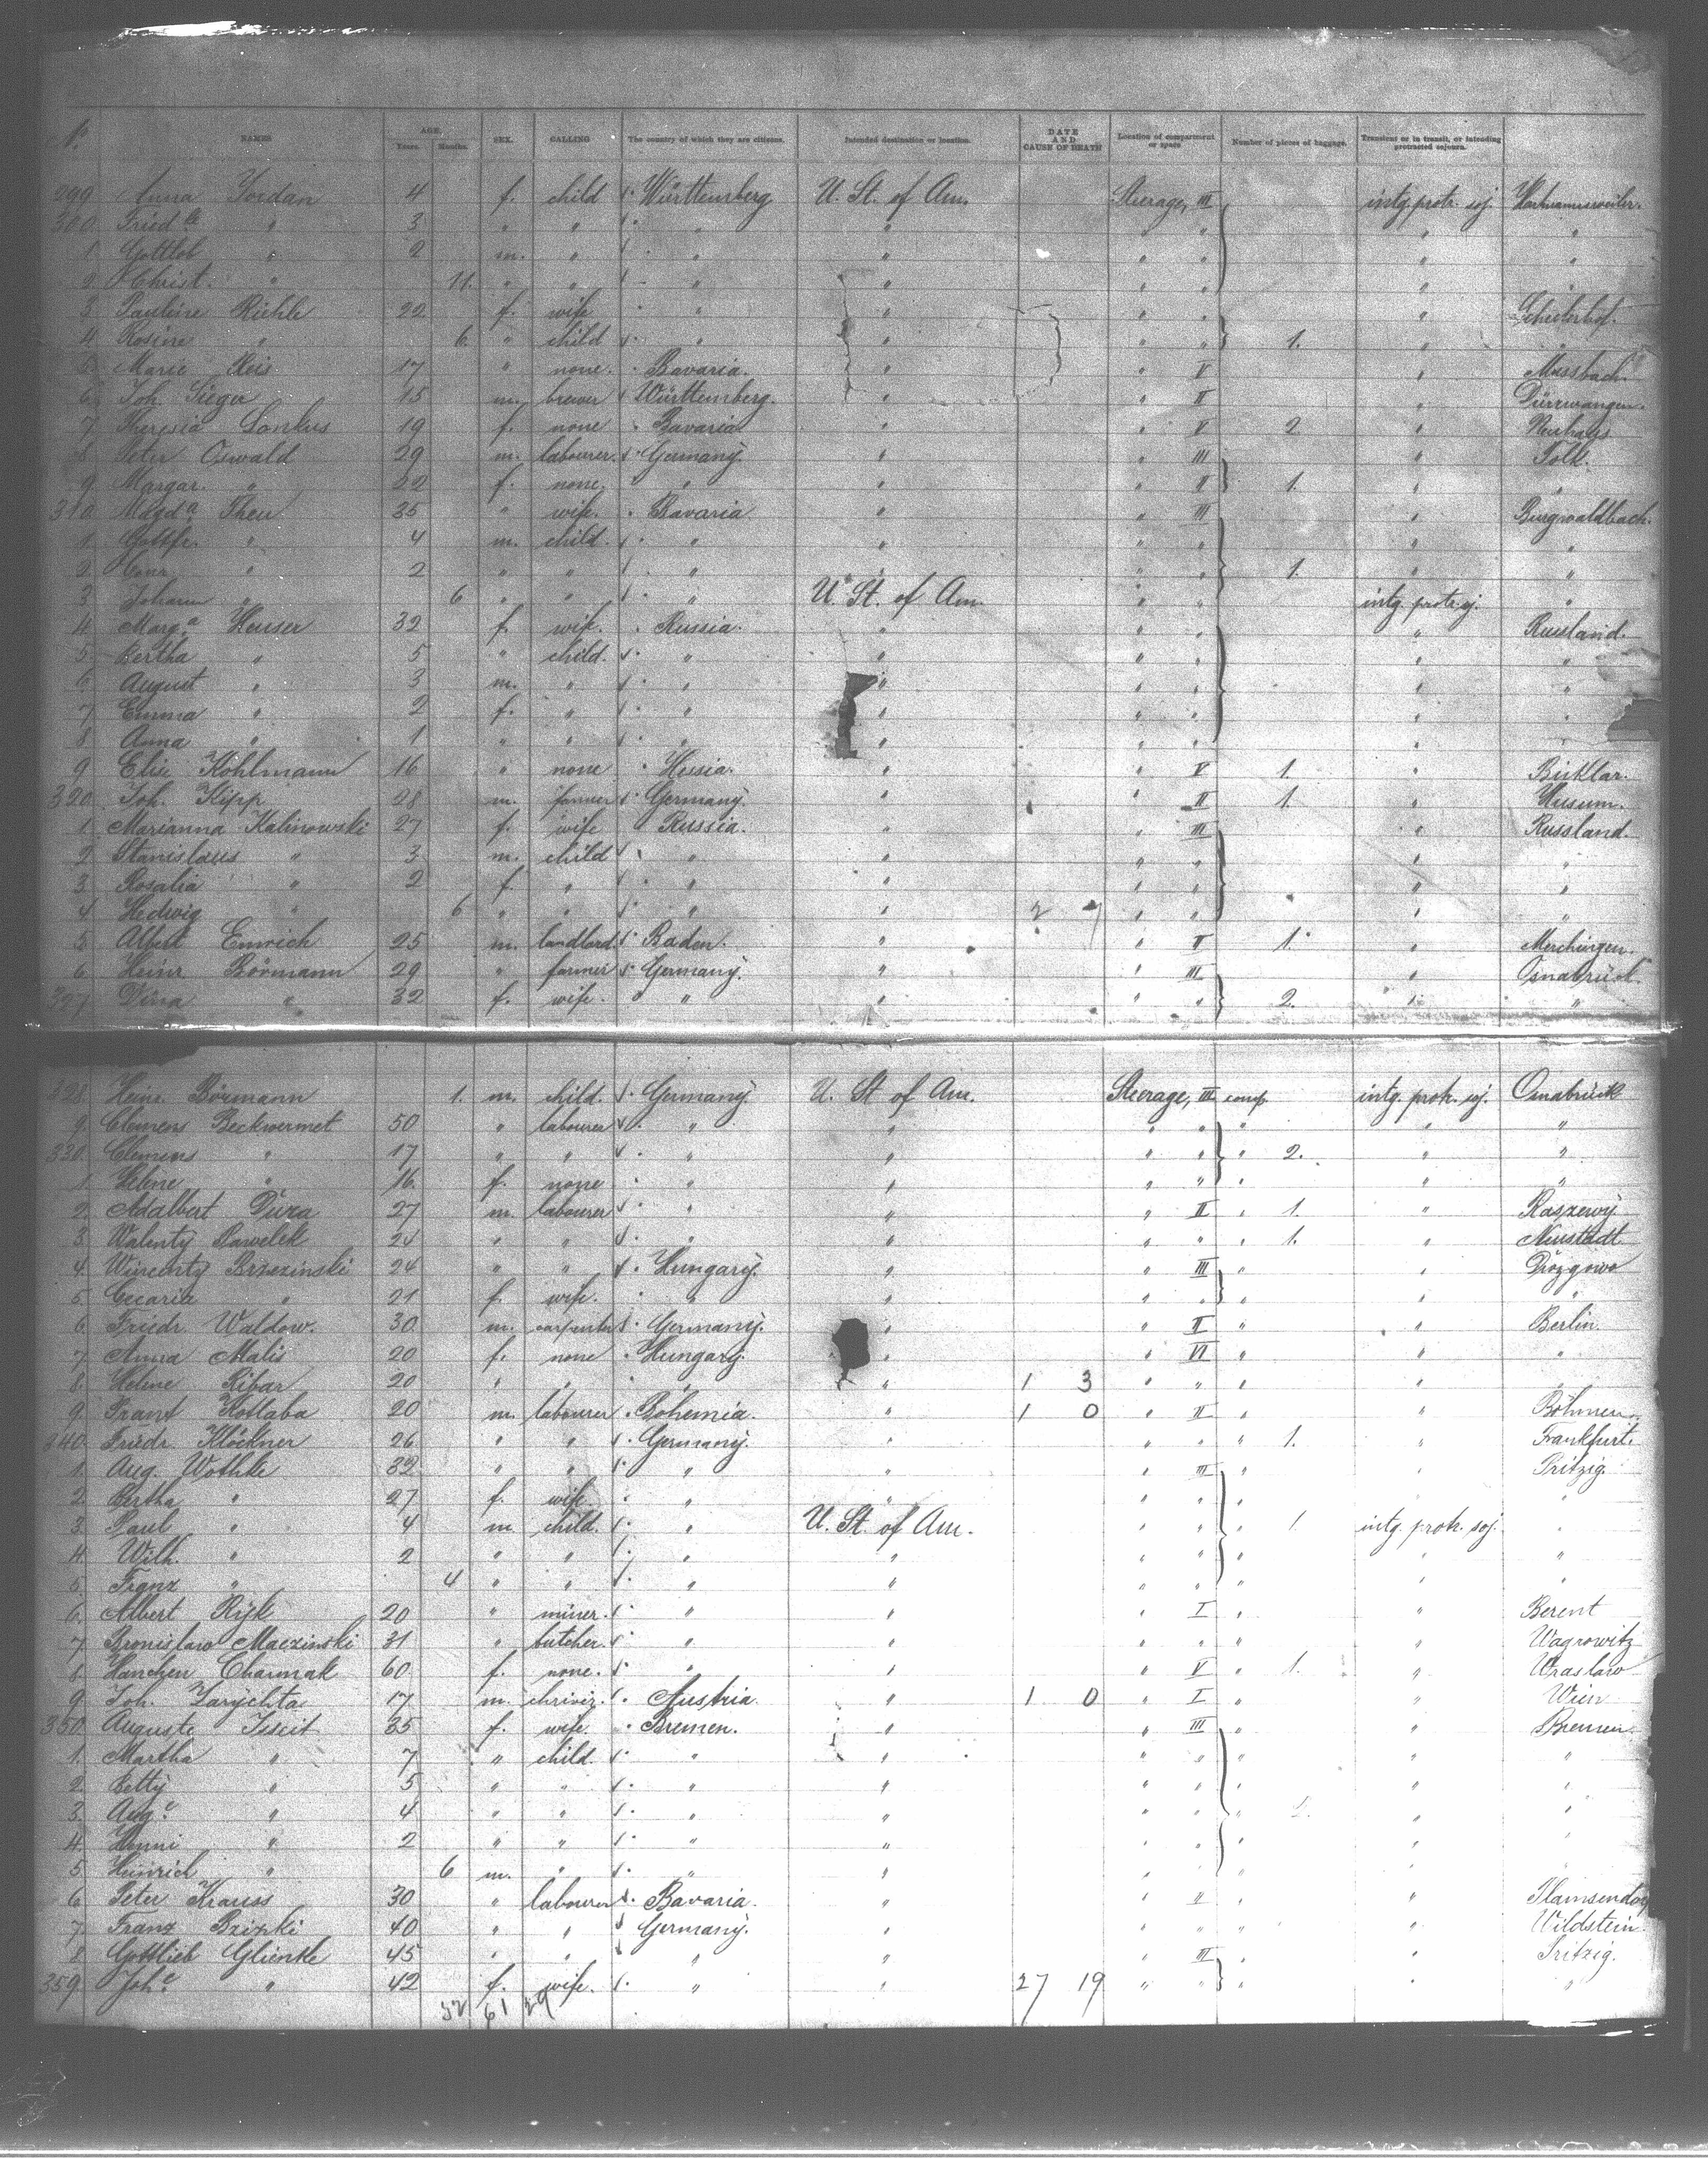 NAMES AGE. Years. Months. SEX. CALLING The country of which they are citizens. Intended destination or location. DATE AND CAUSE OF DEATH Location of compartment or space Number of pieces of baggage. Transient or in transit, or intending protracted sojourn.
299 Anna Jordan 4 f. child Württemberg U. St. of Am. Steerage, III intg. protr. soj.
300 Fried.ke " 3 " " " " " " " "
1 Gottlob " 2 m. " " " " " " "
2 Christ. " 11. " " " " " " " "
3 Pauline Riehle 22 f. wife " " " " "
4 Rosine " 6 " child " " " " 1. "
5 Marie Reis 17 " none. Bavaria. " " V " Mussbach.
6 Joh. Sieger 15 m. brewer Württemberg. " " II " Dürrwangen.
7 Theresia 19 f. none Bavaria " " V 2 " Neuhaus
8 Peter Oswald 29 m. labourer. Germany. " " III " Polk.
9 Margar. " f. none. " " " II 1 " "
310 Magd.a Theu 35 " wife. Bavaria " " III " Burgwaldbach.
1 Gottfr. " 4 m. child. " " " " " "
2 " 2 " " " " " " 1. " "
3 Johann " 6 " " " U. St. of Am. " " intg. protr. sj. "
4 Marg.a Heuser 32 f. wife. Russia. " " " " Russland.
5 Bertha " 5 " child. " " " " " "
6 August " 3 m. " " " " " " "
7 Emma " 2 f. " " " " " " "
8 Anna " 1 " " " " " " " "
9 Elise Köhlmann 16 " none Hessia. " " V 1. " Birklar.
320 Joh. Kipp 28 m. farmer Germany. " " II 1. " Husum.
1 Marianna Kalinowski 27 f. wife Russia. " III " Russland.
2 Stanislaus " 3 m. child " " " " " "
3 Rosalia " 2 f. " " " " " " "
4 Hedwig " 6 " " " " 2 7 " " " "
5 Albert Emrich 25 m. landlord Baden. " " II 1. " Merchingen.
6 Heinr Börmann 29 " farmer Germany. " " III " Osnabrück.
327 Dina " 32 f. wife. " " " " 2. " "
328 Heinr. Börmann 1. m. child. Germany. U. St of Am. Steerage, III comp. intg. protr. sj. Osnabrück
9. Clemens Beckwermet 50 " labourer " " " " " " "
330 Clemens " 17 " " " " " " " 2. " "
1. Helene " 16 f. none " " " " " " "
2. Adalbert Dura 27 m. labourer " " " II " 1. " Raszewy.
3. Walenty Pawelek 24 " " " " " " " 1. " Neustadt
4. Wincenty Brzezinski 24 " " Hungary. " " III " "
5. " 21 f. wife. " " " " " " "
6. Friedr. Waldow. 30 m. carpenter Germany. " " II " " Berlin.
7. Anna Malis 20 f. none Hungary. " " VI " " "
8. Helene Ribar 20 " " " " 1 3 " " " " "
9. Franz Hollaba 20 m. labourer Bohemia. " 1 0 " II " " Böhmen.
340. Friedr. Klöckner 26 " " Germany. " " " " 1. " Frankfurt.
1. Aug. Wothke 32 " " " " " III " " Pritzig.
2. Bertha " 27 f. wife. " " " " " "
3. Paul " 4 m. child. " U. St. of Am. " " " 1. intg. protr. soj. "
4. Wilh. " 2 " " " " " " " " "
5. Franz " 4 " " " " " " " " "
6. Albert Ryk 20 " miner. " " " I " " Berent
7. Bronislaw Maczinski 31 " butcher. " " " " " " Wagrowitz
8. Hanchen Charmak 60 f. none. " " " V " 1. " Wraslaw
9. Joh. Zarychta 17 m. Austria. " 1 0 " I " " Wien
350. Auguste Isseit 35 f. wife. Bremen. " " III " " Bremen.
1. Martha " 7 " child. " " " " " " "
2. Betty " 5 " " " " " " " " "
3. Aug.e " 4 " " " " " " " 2. " "
4. Henni " 2 " " " " " " " " "
5. Heinrich " 6 m. " " " " " " " "
6. Peter Krauss 30 " labourer Bavaria. " " II " "
7. Franz 40 " " Germany. " " " " " Wildstein.
8. Gottlieb Glienke 45 " " " " III " " Pritzig.
359 Joh.e " 42 f. wife. " " 27 19 " " " " "
52 61 29